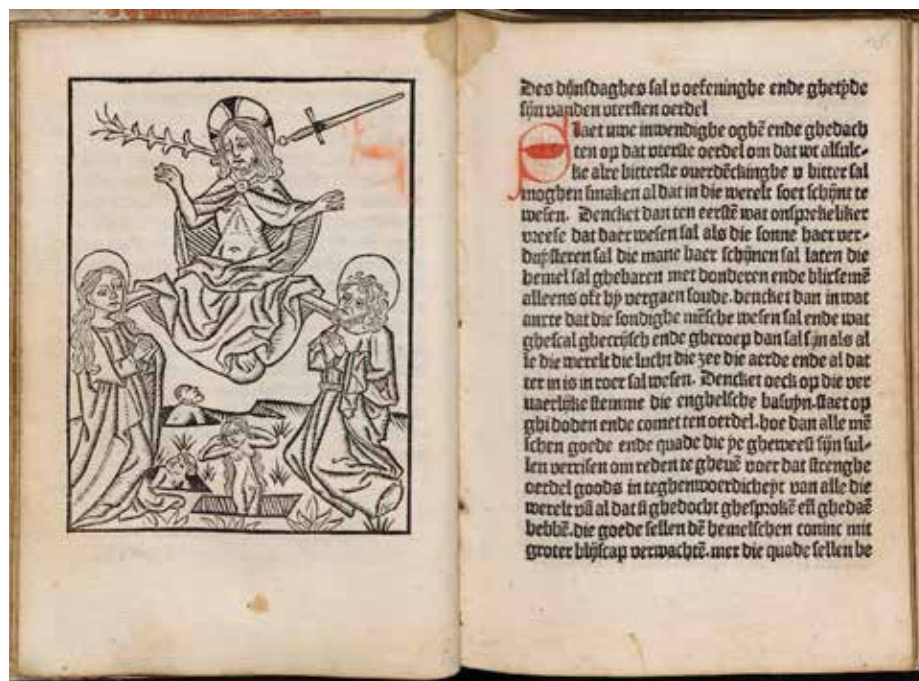 Des dijnsdaghes sal v oefeninghe ende ghetijde
sijn vanden vtersten oerdel
Slaet uwe inwendighe oghē ende ghedach
ten op dat vterste oerdel om dat wt alsulc-
ke alre bitterste ouerdēckinghe v bitter sal
moghen smaken al dat in die werelt soet schijnt te
wesen. Dencket dan ten eerstē wat onsprekeliker
vreese dat daer wesen sal als die sonne haer ver-
duijsteren sal die mane haer schijnen sal laten die
hemel sal ghebaren met donderen ende blixemē
alleens oft hij vergaen soude. dencket dan in wat
anxte dat die sondighe mēsche wesen sal ende wat
ghescal ghecrijsch ende gheroep dan sal sijn als al
le die werelt die lucht die zee die aerde ende al dat
ter in is in roer sal wesen. Dencket oeck op die ver
uaerlijke stemme die enghelsche basuijn. staet op
ghi doden ende comet ten oerdel. hoe dan alle mē
schen goede ende quade die ye gheweest sijn sul-
len verrisen om reden te gheuē voer dat strenghe
oerdel goods in teghenwoerdicheyt van alle die
werelt vā al dat si ghedocht ghesprokē eñ ghedaē
hebbē. die goede sellen dē hemelschen coninc mit
groter blijscap verwachtē. mer die quade sellen be